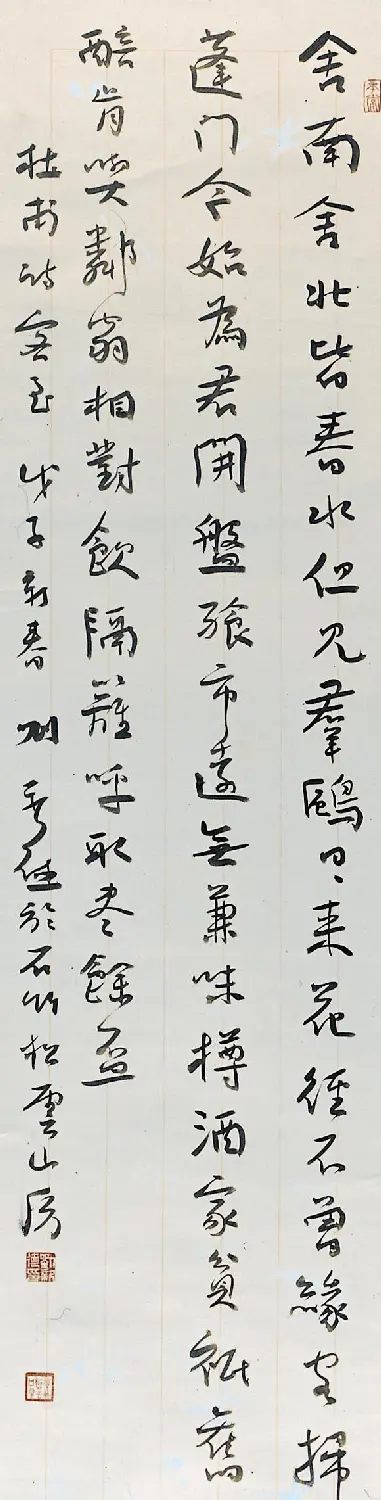 舍南舍北皆春水但見羣鷗日〻来花徑不曾緣客掃
蓬門今始為君開盤飧市遠無兼味樽酒家貧祇舊
醅肯與鄰翁相對飲隔籬呼取尽餘盃
杜甫詩客至 戊子新春 於石竹松雲山房